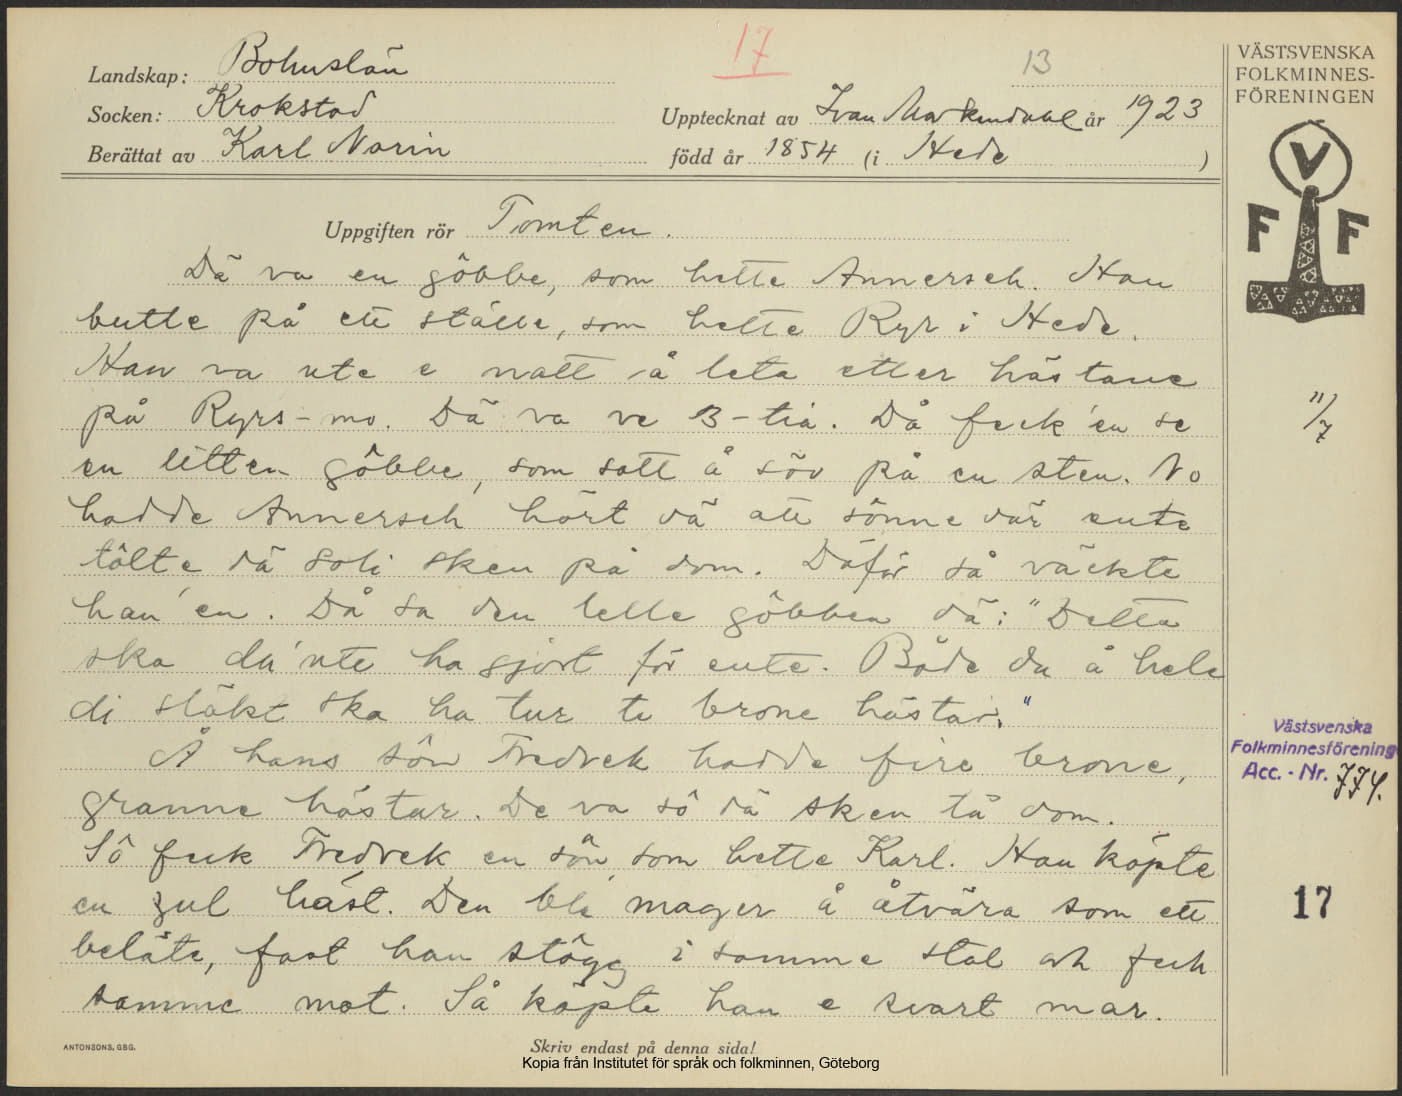 17
13
Landskap: Bohuslän
Socken: Krokstad
Upptecknat av Ivan Markendahl år 1923
Berättat av Karl Norin
född år 1854 (i Hede )
Uppgiften rör Tomten.
Dä va en göbbe, som hette Annersch. Han
butte på ett ställe, som hette Ryr i Hede.
Han va ute e natt å leta etter hästane
på Ryrs-mo. Dä va ve 3-tia. Då feck 'en se
en litten göbbe, som satt å söv på en sten. No
hadde Annersch hört dä att sönne där ente
tålte dä soli sken på dom. Däför så väckte
han 'en. Då sa den lelle göbben dä: "Detta
ska du 'nte ha gjort för ente. Både du å hele
di släkt ska ha tur te brone hästar."
Å hans sön Fredrek hadde fire brone,
granne hästar. De va så dä sken tå dom.
Så feck Fredrek en sön, som hette Karl. Han köpte
en gul häst. Den ble mager å åtvära som ett
beläte, fast han stögg i samme stal och feck
samme mat. Så köpte han e svart mar.
ANTONSONS, GBG.
Skriv endast på denna sida!
Kopia från Institutet för språk och folkminnen, Göteborg
VÄSTSVENSKA
FOLKMINNES-
FÖRENINGEN
V
F F
11/7
Västsvenska
Folkminnesförening
Acc. - Nr. 774.
17